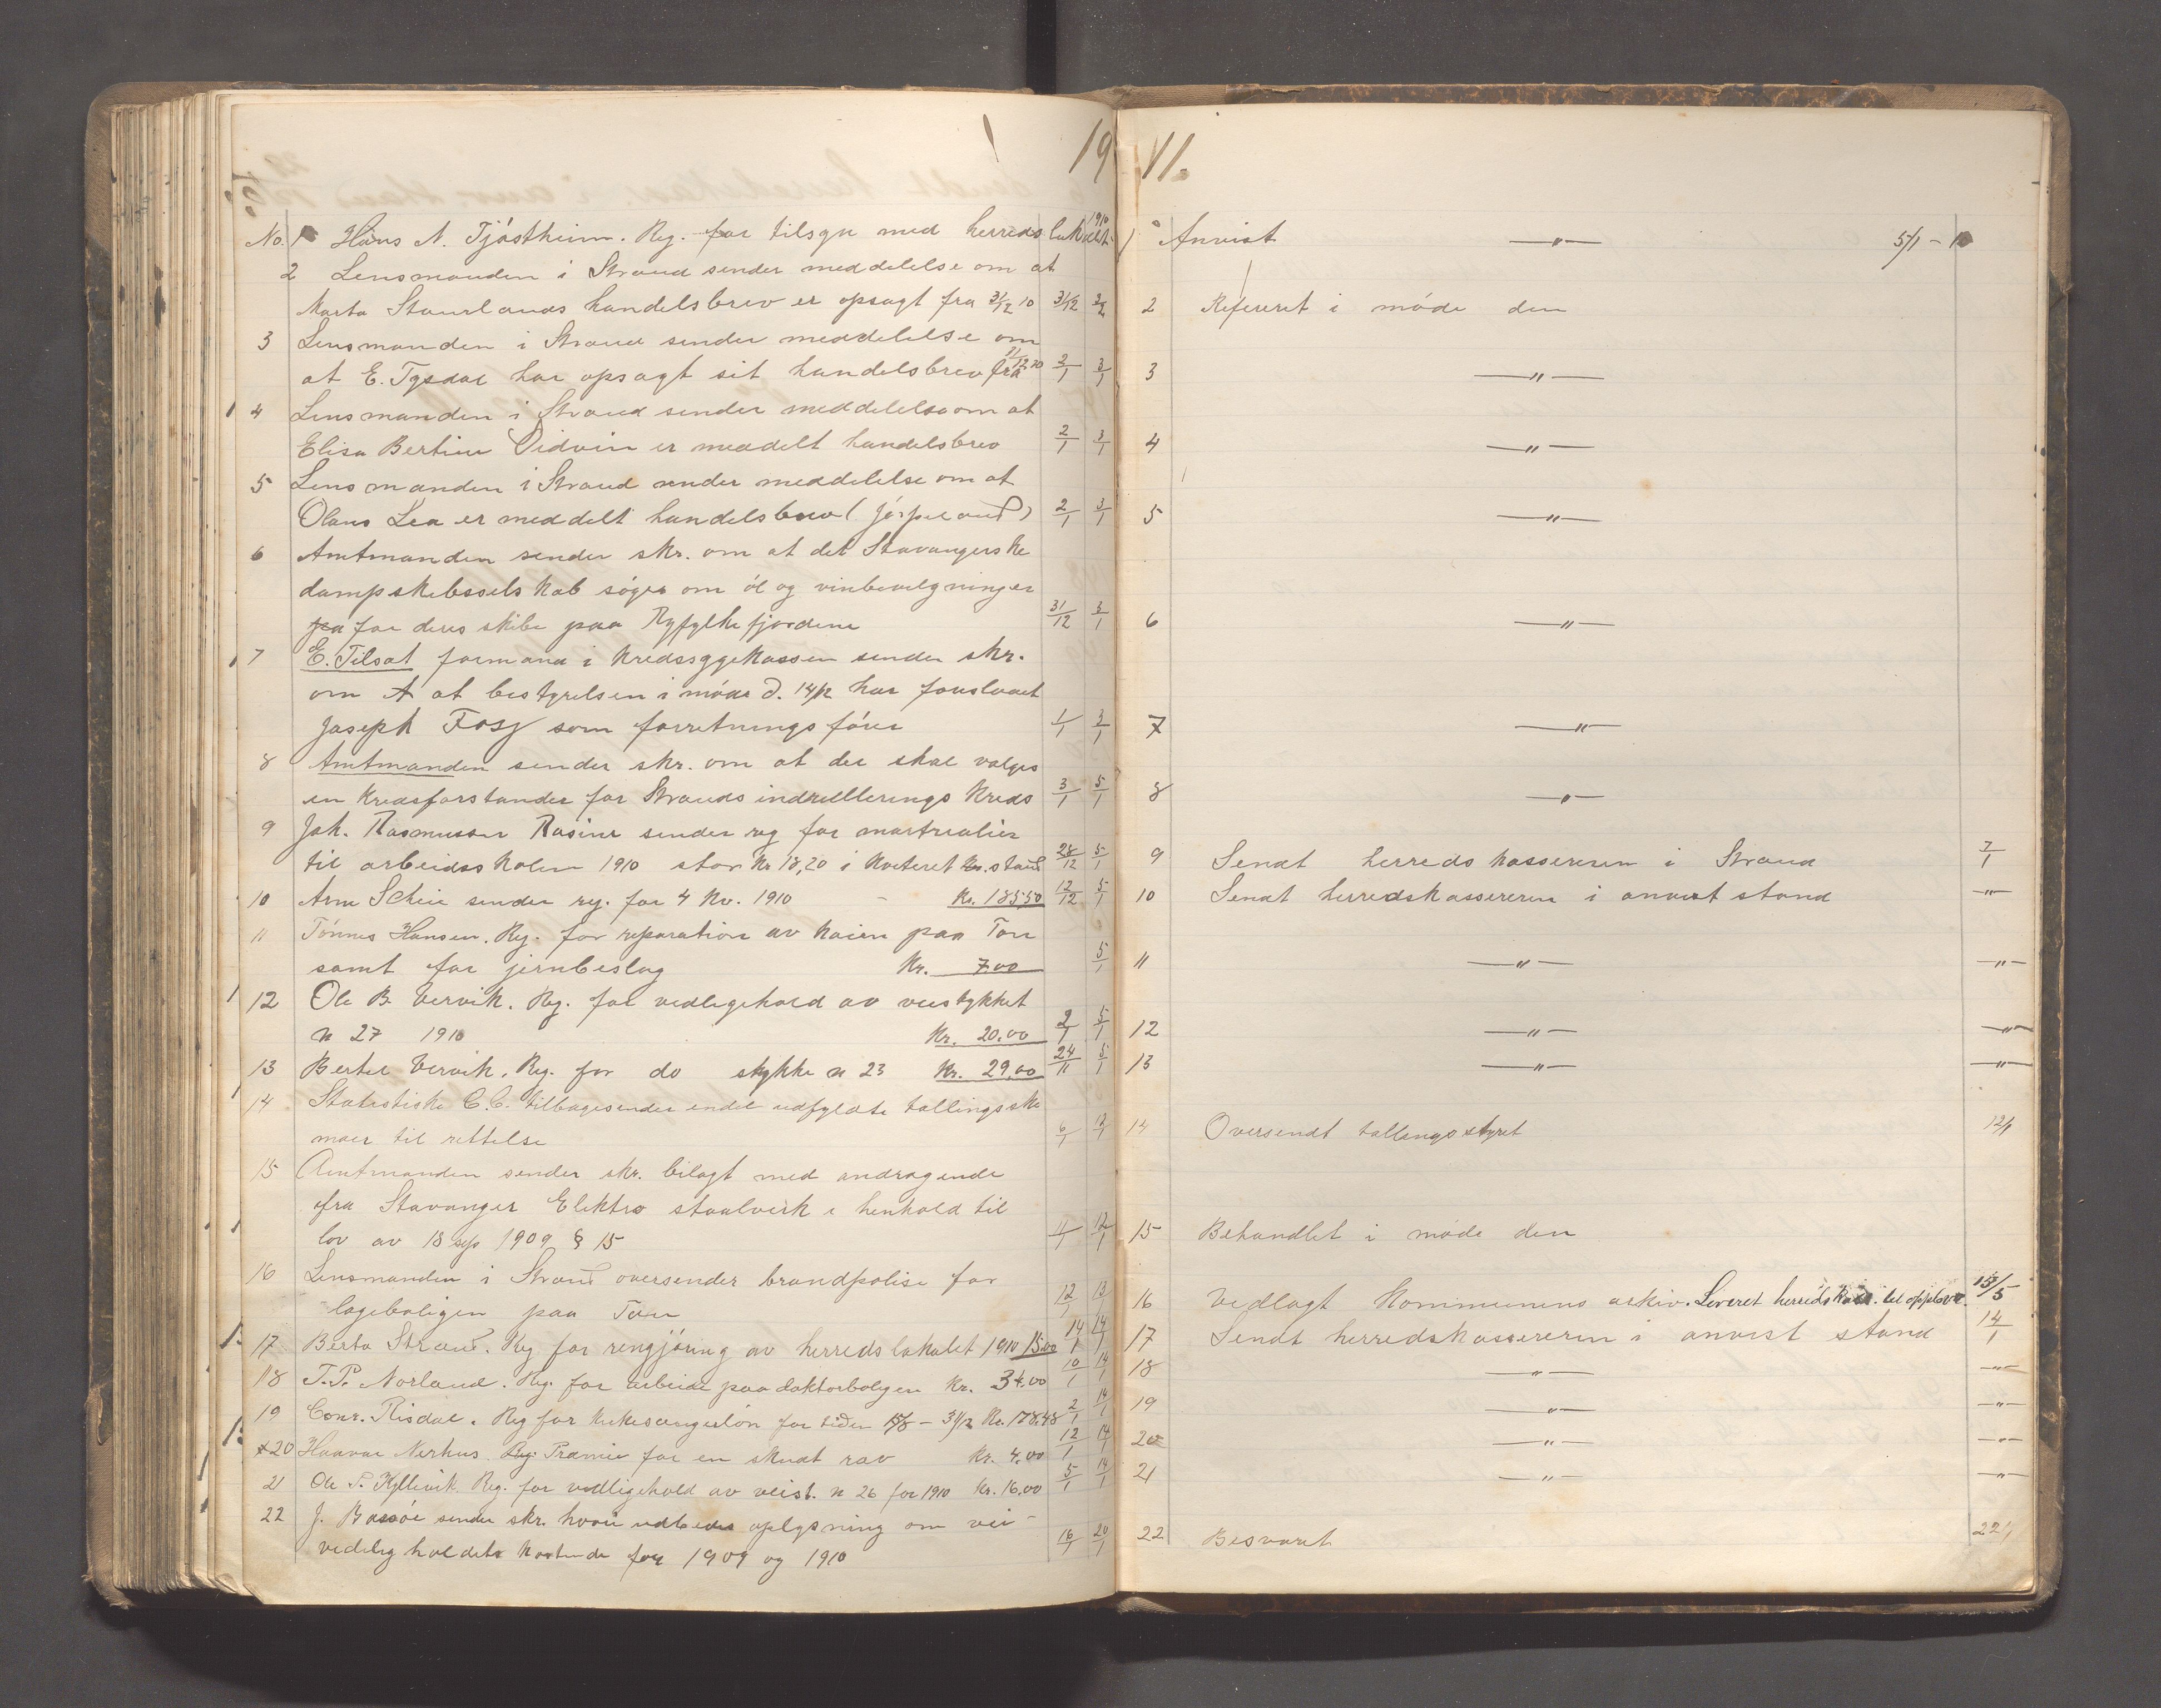 19 11.
No. 1 Hans N. Tjøstheim. Reg. for tilsyn med herredslok 1910
2 Lensmanden i Strand sender meddelelse om at
Marta Staurlands handelsbrev er opsagt fra 31/12 10 31/12 3/1
3 Lensmanden i Strand sender meddelelse om
at E. Tysdal har opsagt sit handelsbrev fra 31/12 10 2/1 3/1
4 Lensmanden i Strand sender meddelelse om at
Elisa Bertine Vidvin er meddelt handelsbrev 2/1 3/1
5 Lensmanden i Strand sender meddelelse om at
Olaus Lea er meddelt handelsbrev (Jørpeland) 2/1 3/1
6 Amtmanden sender skr. om at det Stavangerske
dampskibsselskab søger om øl og vinbevilgninger
for deres skibe paa Ryfylkefjordene 31/12 3/1
7 E. Tilsat formand i kredssygekassen sender skr.
om at bestyrelsen i møde d. 14/12 har foreslaaet
Joseph Fossj som forretningsfører 1/1 3/1
8 Amtmanden sender skr. om at der skal valges
en kredsforstander for Strands indrulleringskreds 3/1 5/1
9 Joh. Rasmussen Rasine sender reg for matrialier
til arbeidsskolen 1910 stor Kr 18,20 i kvteret stand 28/12 5/1
10 Arne Scheie sender reg. for 4 Kv. 1910 - Kr. 185,50 12/12 5/1
11 Tønnes Hansen. Reg. for reparation av kaien paa Tau
samt for jernbeslag Kr. 7.00 5/1
12 Ole B. Vervik. Reg. for vedligehold av veistykket
n 27 1910 Kr. 20.00 2/1 5/1
13 Bertel Vervik. Reg. for do stykke n 23 Kr. 29,00 24/11 5/1
14 Statistiske C.C. tilbagesender endel udfyldte tællingsske
maer til rettelse 6/1 12/1
15 Amtmanden sender skr. bilagt med andragende
fra Stavanger Elektro staalverk i henhold til
lov av 18 sep 1909 § 15 11/1 12/1
16 Lensmanden i Strand oversender brandpolise for
lægeboligen paa Tau 12/1 13/1
17 Berta Strand. Reg for rengjøring av herredslokalet 1910 15.00 14/1 14/1
18 T.P. Norland. Reg. for arbeide paa doktorboligen Kr. 34.00 10/1 14/1
19 Conr. Risdal. Reg for kirkesangerløn for tiden 15/8 - 31/12 Kr. 178.48 2/1 14/1
x20 Haavar Nerhus. Præmie for en skudt ræv Kr. 4.00 12/1 14/1
21 Ole P. Kyllevik Reg. for vedligehold av veist. n 26 for 1910 Kr. 16.00 5/1 14/1
22 J. Bassøe sender skr. hvori udbedes oplysning om vei-
vedligholdets kostende for 1909 og 1910 16/1 20/1
1 Anvist —"— 5/1 - 11
2 Refereret i møde den
3 —"—
4 —"—
5 —"—
6 —"—
7 —"—
8 —"—
9 Sendt herredskassereren i Strand 7/1
10 Sendt herredskassereren i anvist stand —"—
11 —"— —"—
12 —"— —"—
13 —"— —"—
14 Oversendt tællingsstyret 12/1
15 Behandlet i møde den
16 Vedlagt Kommunens arkiv. Leveret herredskass. til opplev. 15/5
17 Sendt herredskassereren i anvist stand 14/1
18 —"— —"—
19 —"— —"—
20 —"— —"—
21 —"— —"—
22 Besvaret 22/1